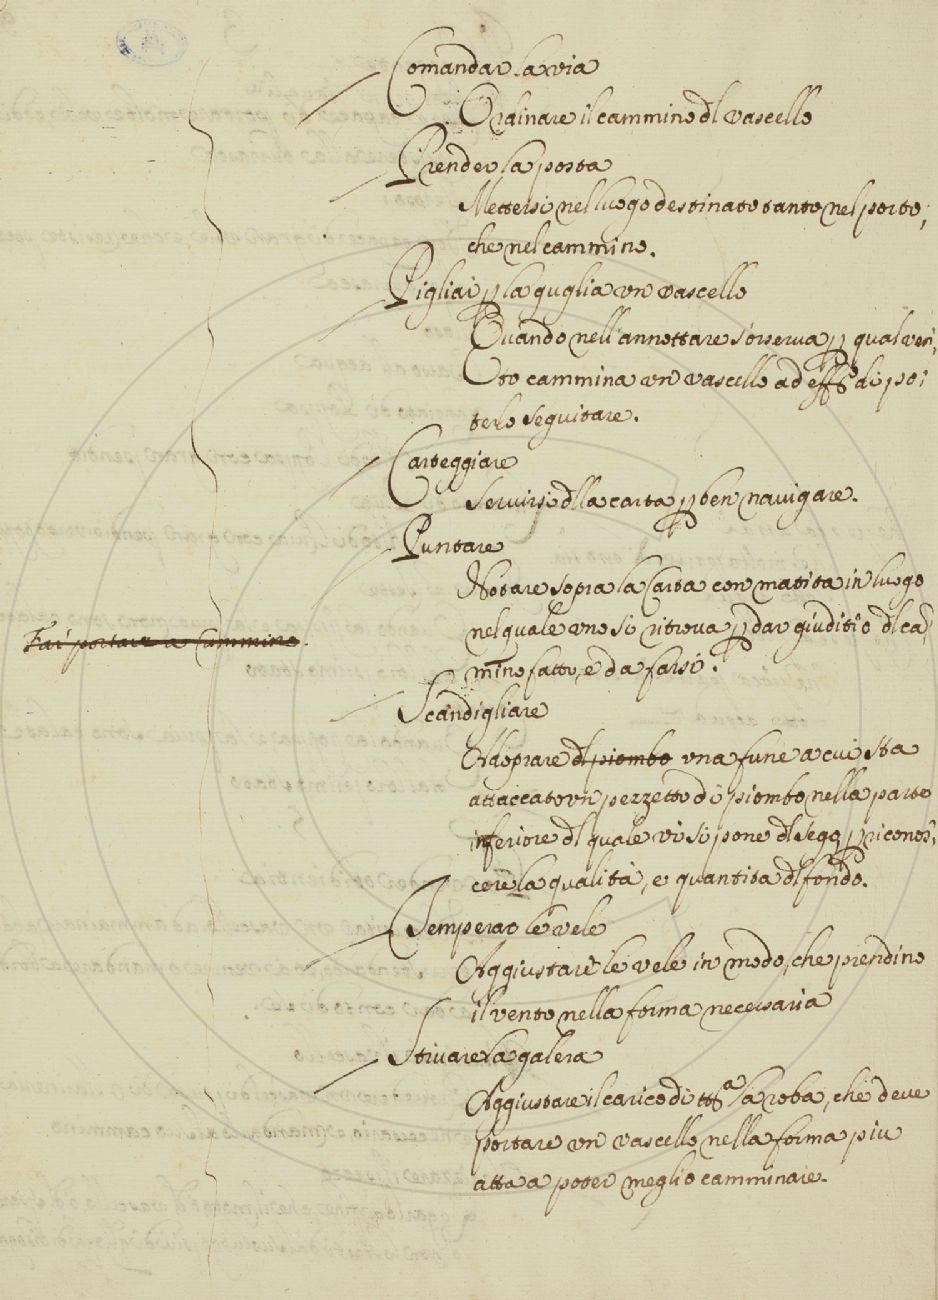 Comandar la via
Ordinare il cammino dl vascello
Prender la posta
Mettersi nel luogo destinato tanto nel porto,
che nel cammino.
Pigliar p la guglia un vascello
Quando nell'annottare s'osserva p qual ven,
to cammina un vascello ad effo di po,
terlo seguitare.
Carteggiare
Servirsi dlla carta p ben navigare.
Puntare
Notare sopra la Carta con matita in luogo
nel quale uno si ritrova p dar giuditio dl ca,
Far portare a Cammino.
mino fatto, e da farsi.
Scandigliare
Adoprare dl piombo una fune a cui sta
attaccato un pezzetto di piombo nella parte
inferiore dl quale vi si pone dl sego p ricono,
cere la qualità, e quantita dl fondo.
Temperar le vele
Aggiustare le vele in modo, che prendino
il vento nella forma necessaria
Stivare la galera
Aggiustare il carico di tta la roba, che deve
portare un vascello nella forma piu
atta a poter meglio camminare.